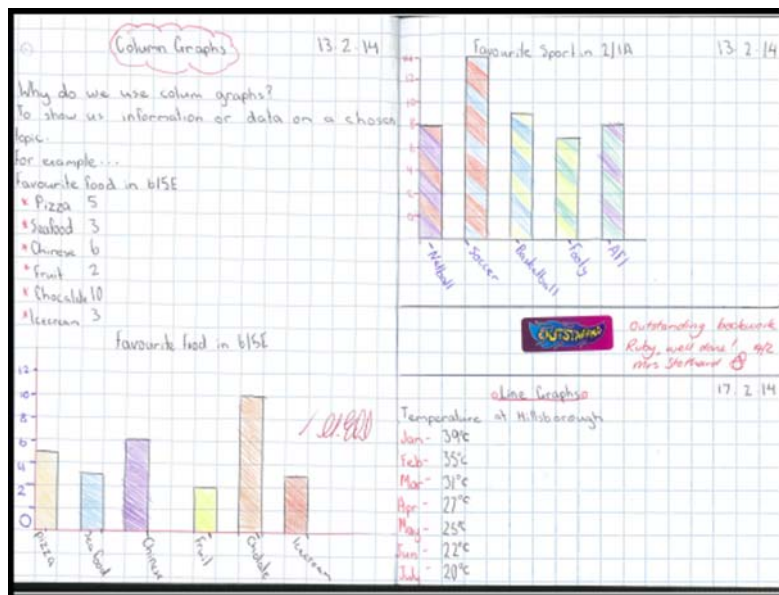 Column Graphs
13.2.14
Why do we use colum graphs?
To show us information or data on a chosen
topic.
For example...
Favourite food in 6/5E
* Pizza 5
* Seafood 3
* Chinese 6
* Fruit 2
* Chocalate 10
* Icecream 3
Favourite food in 6/5E
12
10
8
6
4
2
0
Pizza
Sea food
Chinese
Fruit
Icecream
Favourite Sport in 2/1A
13.2.14
14
12
10
8
6
4
2
Netball
Soccer
Basketball
Footy
AFL
OUTSTANDING
Outstanding bookwork
Ruby, well done!
Mrs
Line Graphs
17.2.14
Temperature at Hillsborough
Jan - 39°c
Feb - 35°c
Mar - 31°c
Apr - 27°c
May - 25°c
Jun - 22°c
July - 20°c